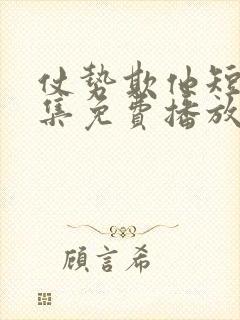 仗势欺他短
集免費播放
顧言希